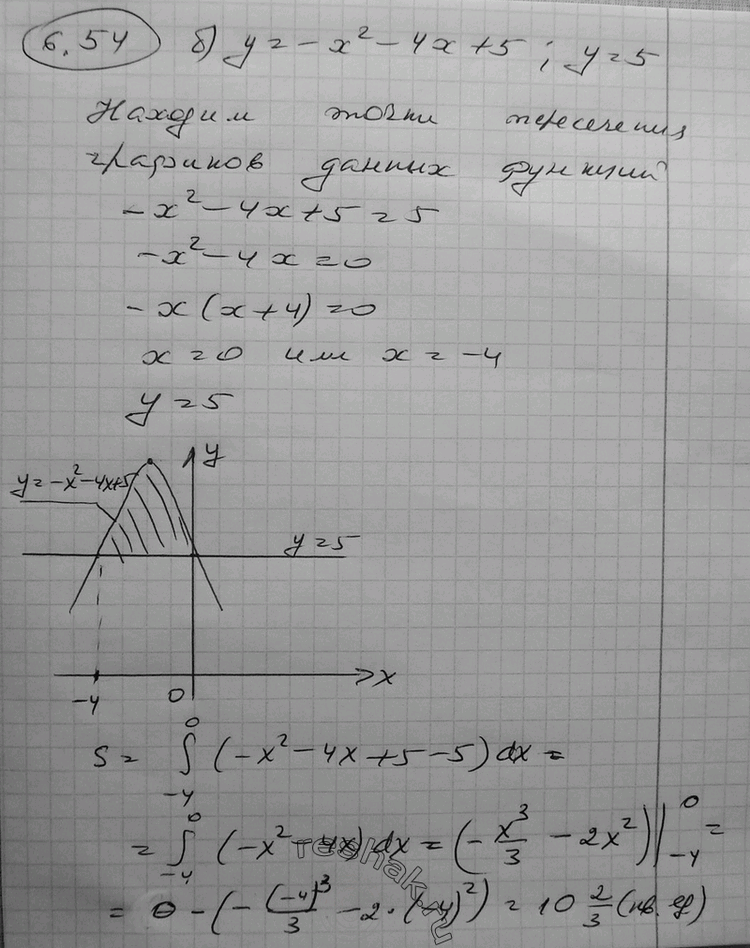 6.54 б) y = -x² - 4x + 5 ; y = 5
Находим точки пересечения
графиков данных функций
-x² - 4x + 5 = 5
-x² - 4x = 0
-x(x + 4) = 0
x = 0 или x = -4
y = 5
y
y = -x² - 4x + 5
y = 5
-4 0 x
S = ∫₋₄⁰ (-x² - 4x + 5 - 5) dx =
= ∫₋₄⁰ (-x² - 4x) dx = (-x³/3 - 2x²)|₋₄⁰ =
= 0 - (-(-4)³/3 - 2·(-4)²) = 10 2/3 (кв. ед)
reshak.ru